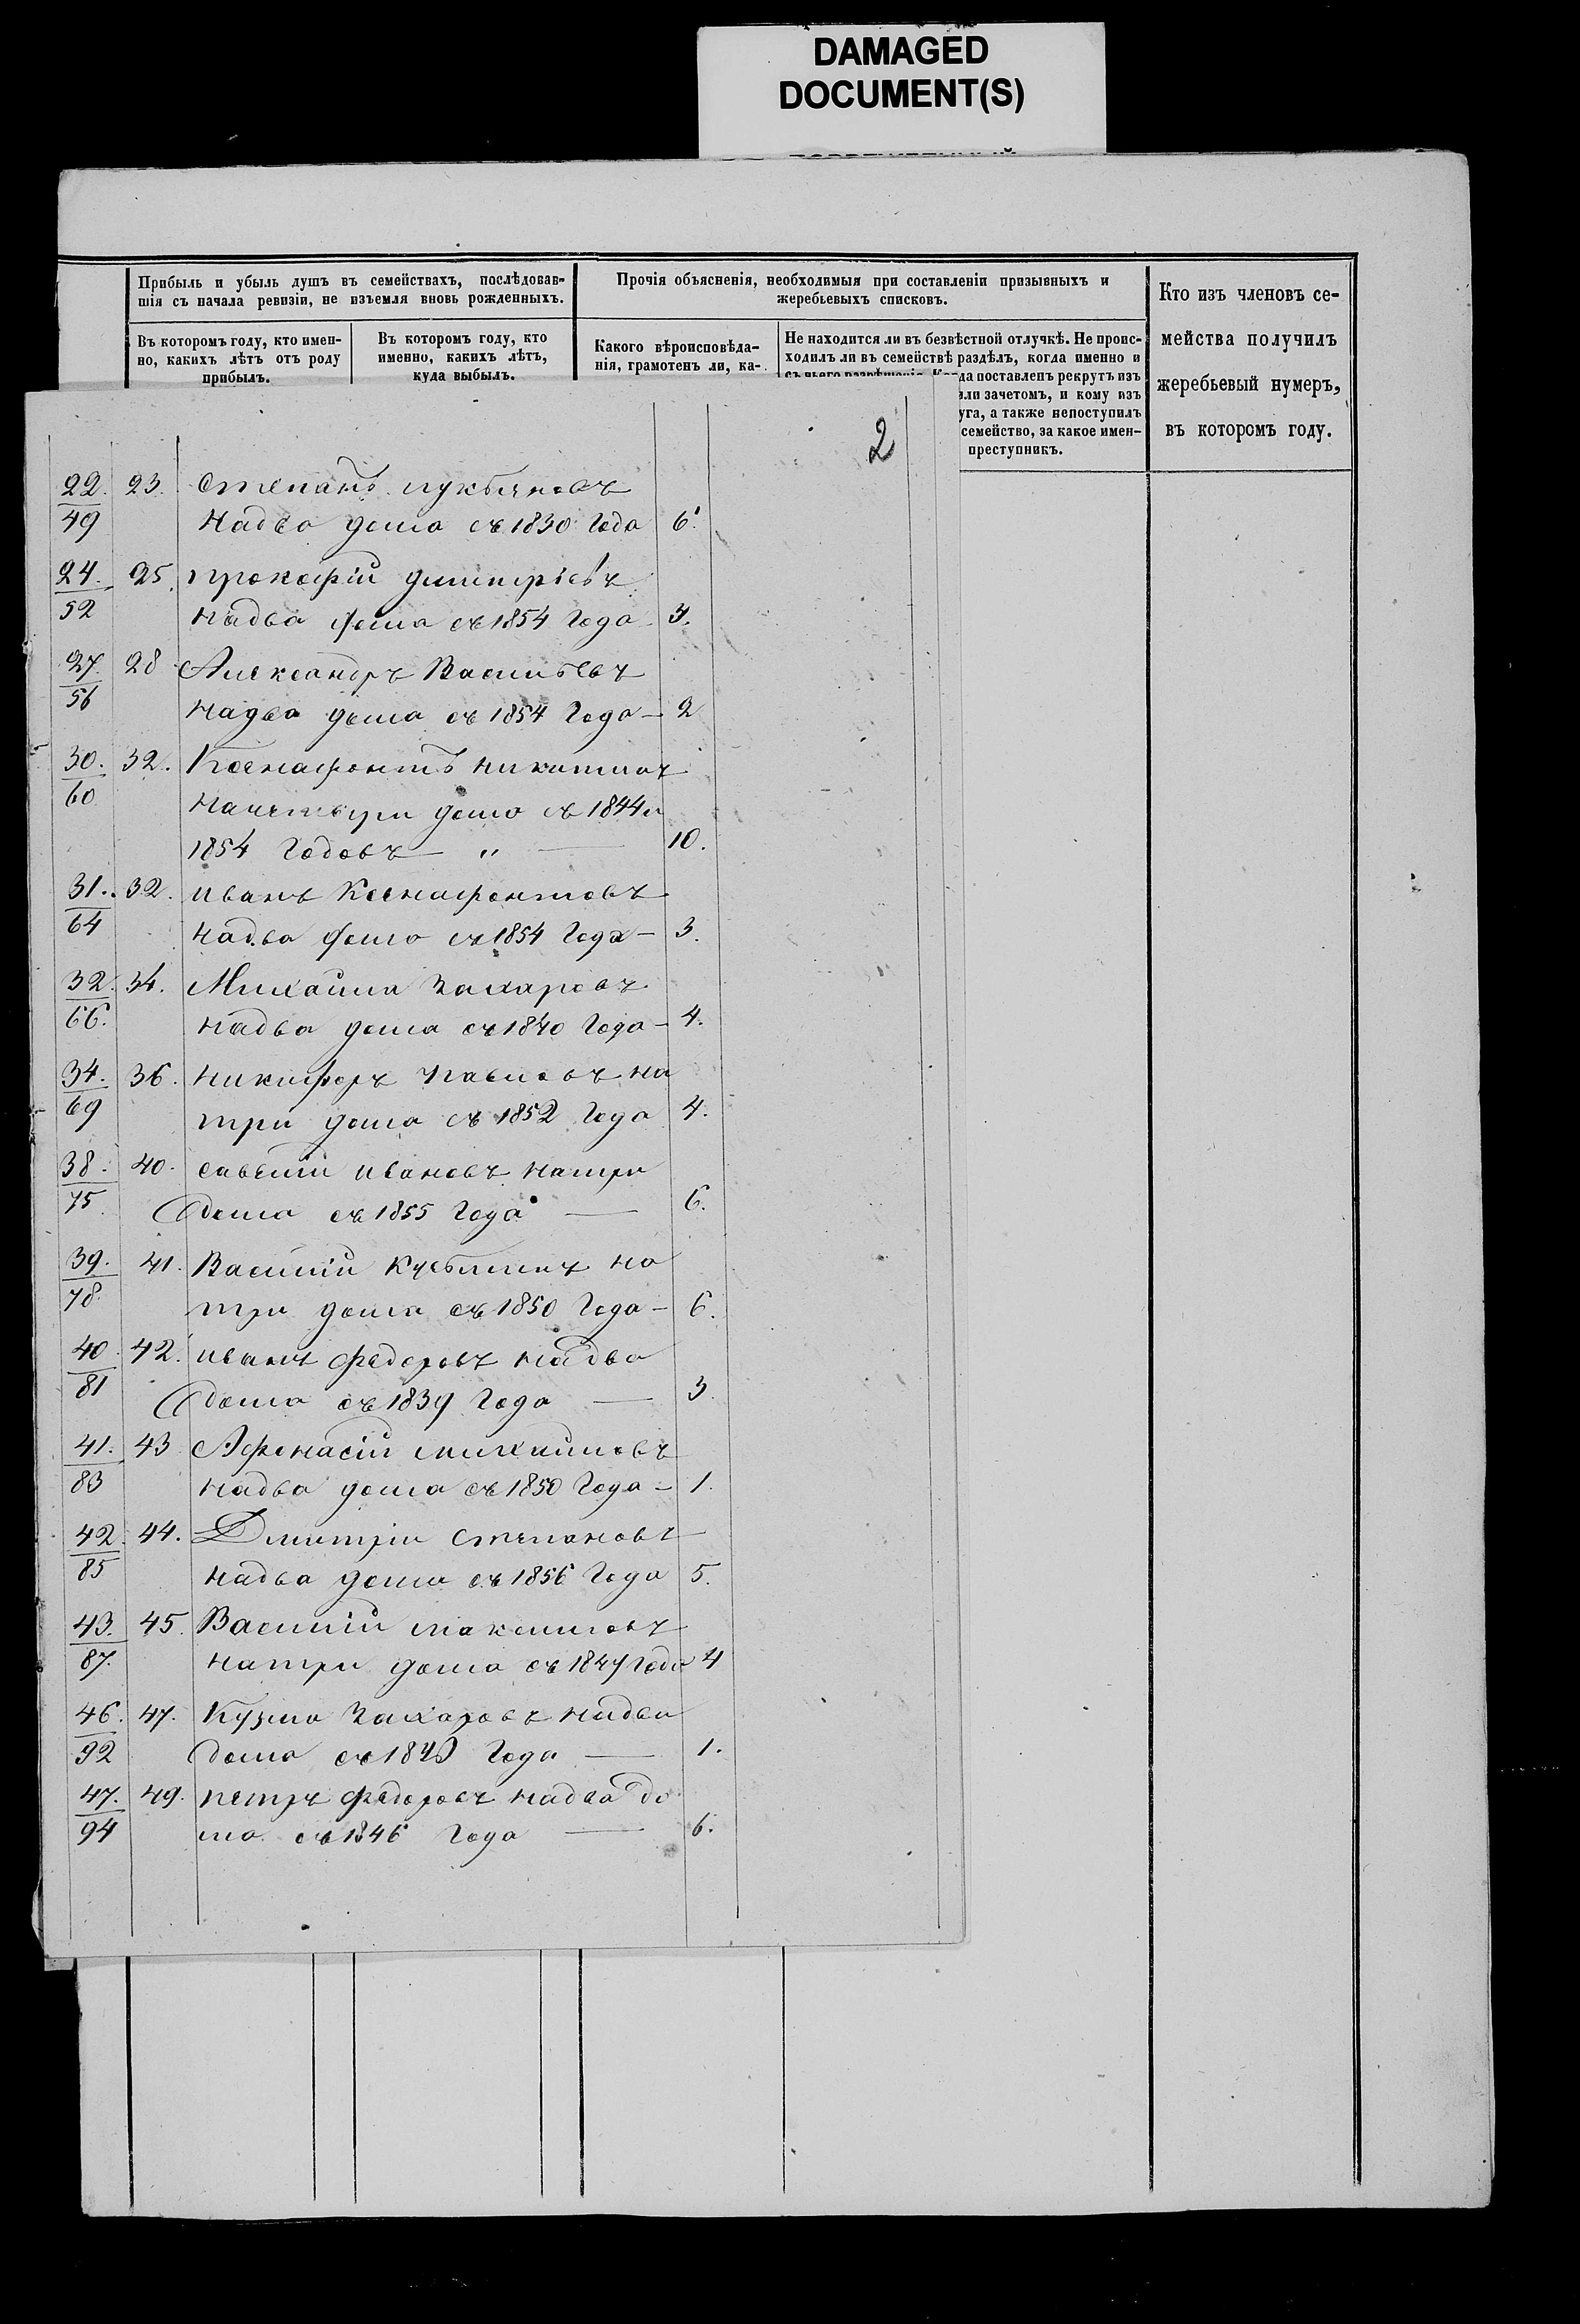 DAMAGED
DOCUMENT(S)
Прибыль и убыль душъ въ семействахъ, послѣдовав-
шія съ начала ревизіи, не изъемля вновь рожденныхъ.
Въ которомъ году, кто имен-
но, какихъ лѣтъ отъ роду
прибылъ.
Въ которомъ году, кто
именно, какихъ лѣтъ,
куда выбылъ.
Прочія объясненія, необходимыя при составленіи призывныхъ и
жеребьевыхъ списковъ.
Какого вѣроисповѣда-
нія, грамотенъ ли, ка-
Не находится ли въ безвѣстной отлучкѣ. Не проис-
ходилъ ли въ семействѣ раздѣлъ, когда именно и
да поставленъ рекрутъ изъ
ли зачетомъ, и кому изъ
уга, а также непоступилъ
семейство, за какое имен-
преступникъ.
Кто изъ членовъ се-
мейства получилъ
жеребьевый нумеръ,
въ которомъ году.
2
22. 23. Степанъ лукьяновъ
49 надва дома съ 1830 года 6.
24. 25. прокофій димитріевъ
52 надва дома съ 1854 года 3.
27. 28 Александръ Васильевъ
56 надва дома съ 1854 года — 2
30. 32. Ксенафонтъ никитинъ
60 начетыри дома съ 1844 и
1854 годовъ — " — 10.
31. 32. иванъ Ксенафонтовъ
64 надва дома съ 1854 года — 3.
32. 34. Михаила Захаровъ
66. надва дома съ 1840 года — 4.
34. 36. никифоръ Павловъ на
69 три дома съ 1852 года 4.
38. 40. савелій ивановъ натри
75. дома съ 1855 года — 6.
39. 41. Василій Кузьминъ на
78. три дома съ 1850 года — 6.
40. 42. иванъ федоровъ надва
81 дома съ 1839 года — 3
41. 43 Афонасій михаиловъ
83 надва дома съ 1850 года — 1.
42. 44. Дмитріи степановъ
85 надва дома съ 1856 года 5.
43. 45. Василіи максимовъ
87. натри дома съ 1847 года 4
46. 47. Кузма Захаровъ надва
92 дома съ года — 1.
47. 49. петръ федоровъ надва до
94 ма съ 1846 года — 6.